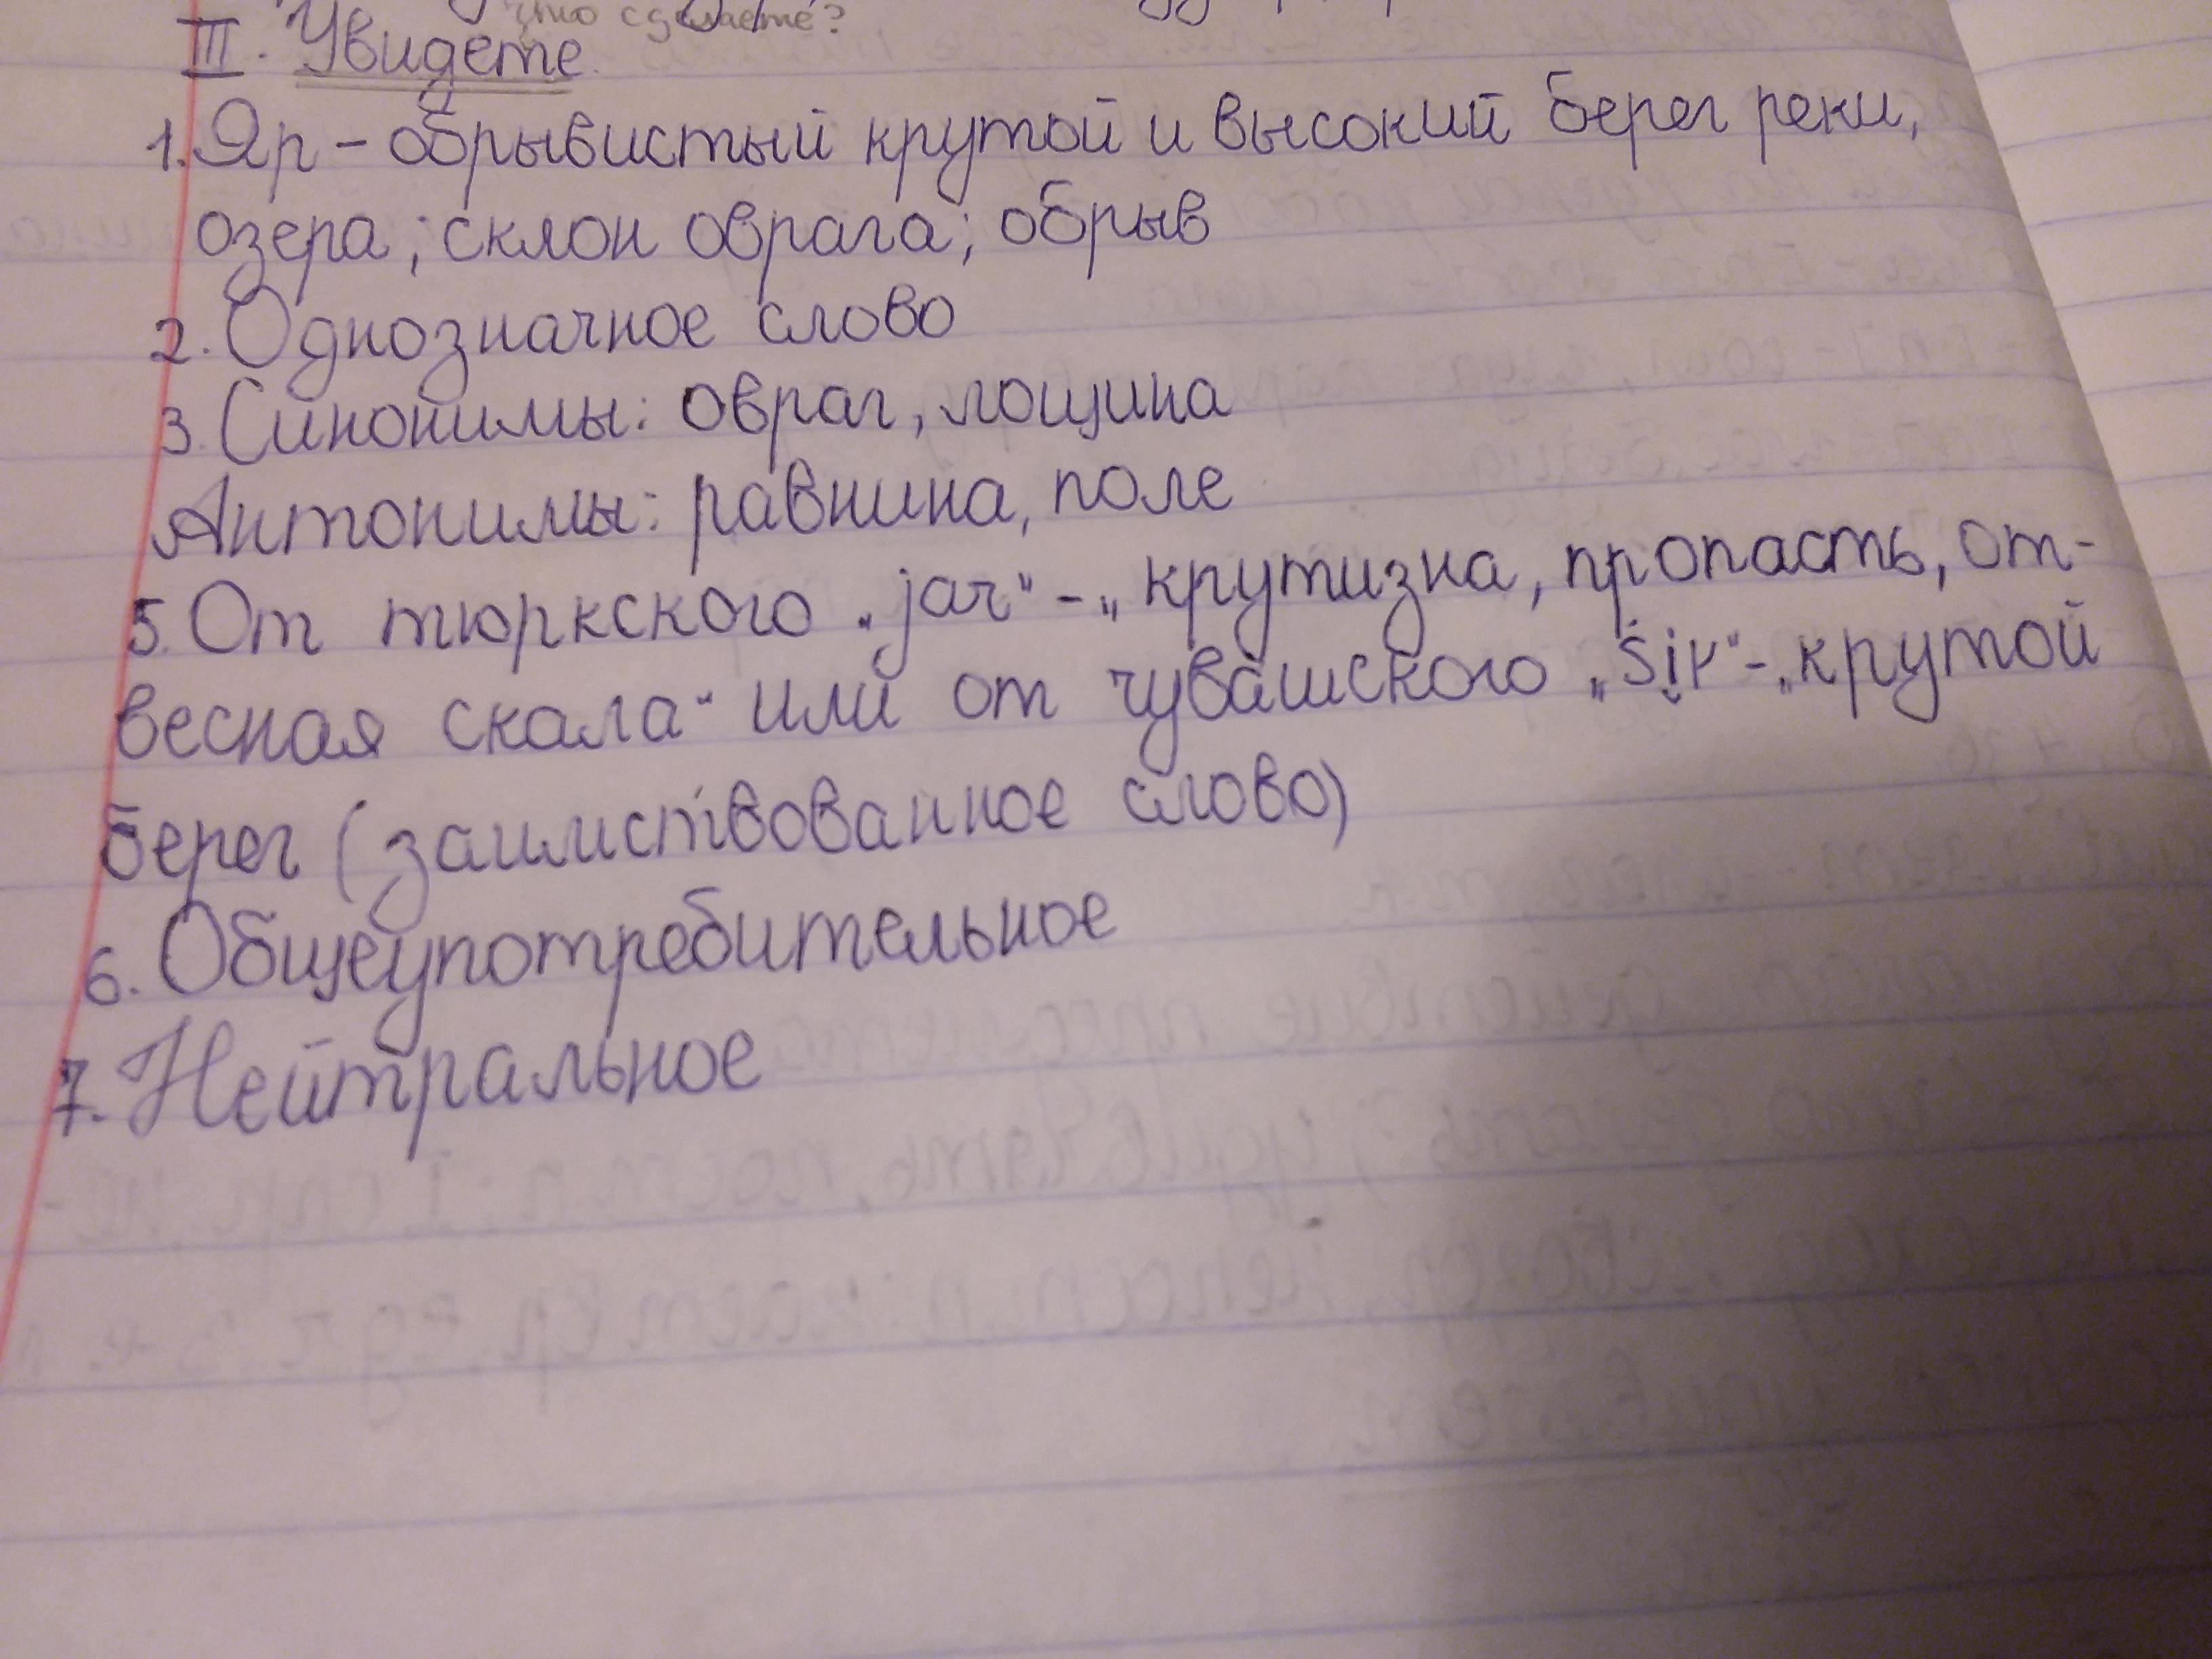 что сделаете?
III. Увидете
1. Яр – обрывистый крутой и высокий берег реки,
озера; склон оврага; обрыв
2. Однозначное слово
3. Синонимы: овраг, лощина
Антонимы: равнина, поле
5. От тюркского „jar“ – „крутизна, пропасть, от-
весная скала“ или от чувашского „śir“ – „крутой
берег (заимствованное слово)
6. Общеупотребительное
7. Нейтральное